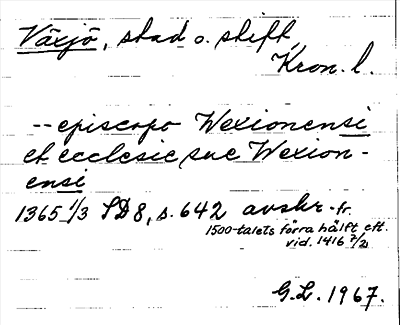 Växjö, stad o. stift,
Kron. l.
-- episcopo Wexionensi
et ecclesie sue Wexion-
ensi
1365 1/3 SD 8, s. 642 avskr. fr.
1500-talets förra hälft eft.
vid. 1416 7/2
G.L. 1967.